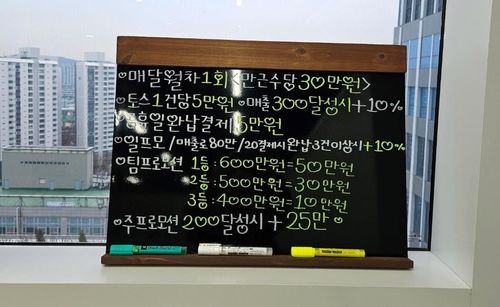 ♡매달월차1회<만근수당30만원>
♡토스1건당5만원♡매출300달성시+10%
♡공휴일완납결제5만원
♡일프모/매출로80만/20결제시완납3건이상시+10%
♡팀프로모션 1등:600만원=50만원
2등:500만원=30만원
3등:400만원=10만원
♡주프로모션 200달성시+25만♡